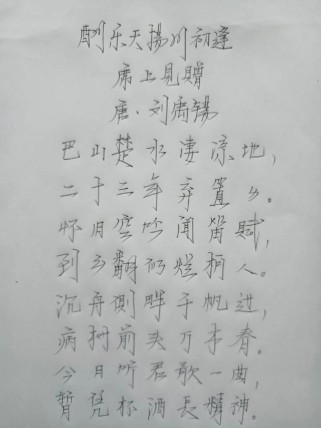 酬乐天揚州初逢
席上見贈
唐·刘禹锡
巴山楚水凄凉地，
二十三年弃置身。
怀旧空吟闻笛賦，
到乡翻似烂柯人。
沉舟側畔千帆过，
病树前头万木春。
今日听君歌一曲，
暂凭杯酒長精神。